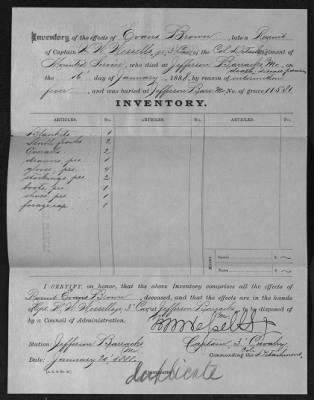 Inventory of the effects of Evans Brown, late a Recruit
of Captain H. W. Wessells, jr. 3" Cav. in the Col'd Detachment of
Mounted Service, who died at Jefferson Barracks, Mo., on
the 16" day of January, 1888, by reason of intermittent
fever, and was buried at Jefferson Barr. Mo. No. of grave
INVENTORY.
ARTICLES. No. ARTICLES. No. ARTICLES. No.
Blankets 1
2
Overalls 2
drawers prs. 1
gloves prs. 4
stockings prs. 2
boots prs. 1
shoes prs. 1
forage cap 1
MONEY
Notes
Specie
I CERTIFY, on honor, that the above Inventory comprises all the effects of
Recruit Evans Brown, deceased, and that the effects are in the hands
of Capt. H. W. Wessells, jr. 3" Cav. at Jefferson Barracks, Mo., to be disposed of
by a Council of Administration.
H W Wessells Jr
Station: Jefferson Barracks Mo. Captain 3" Cavalry
Date: January 20" 1888. Commanding the Detachment.
duplicate